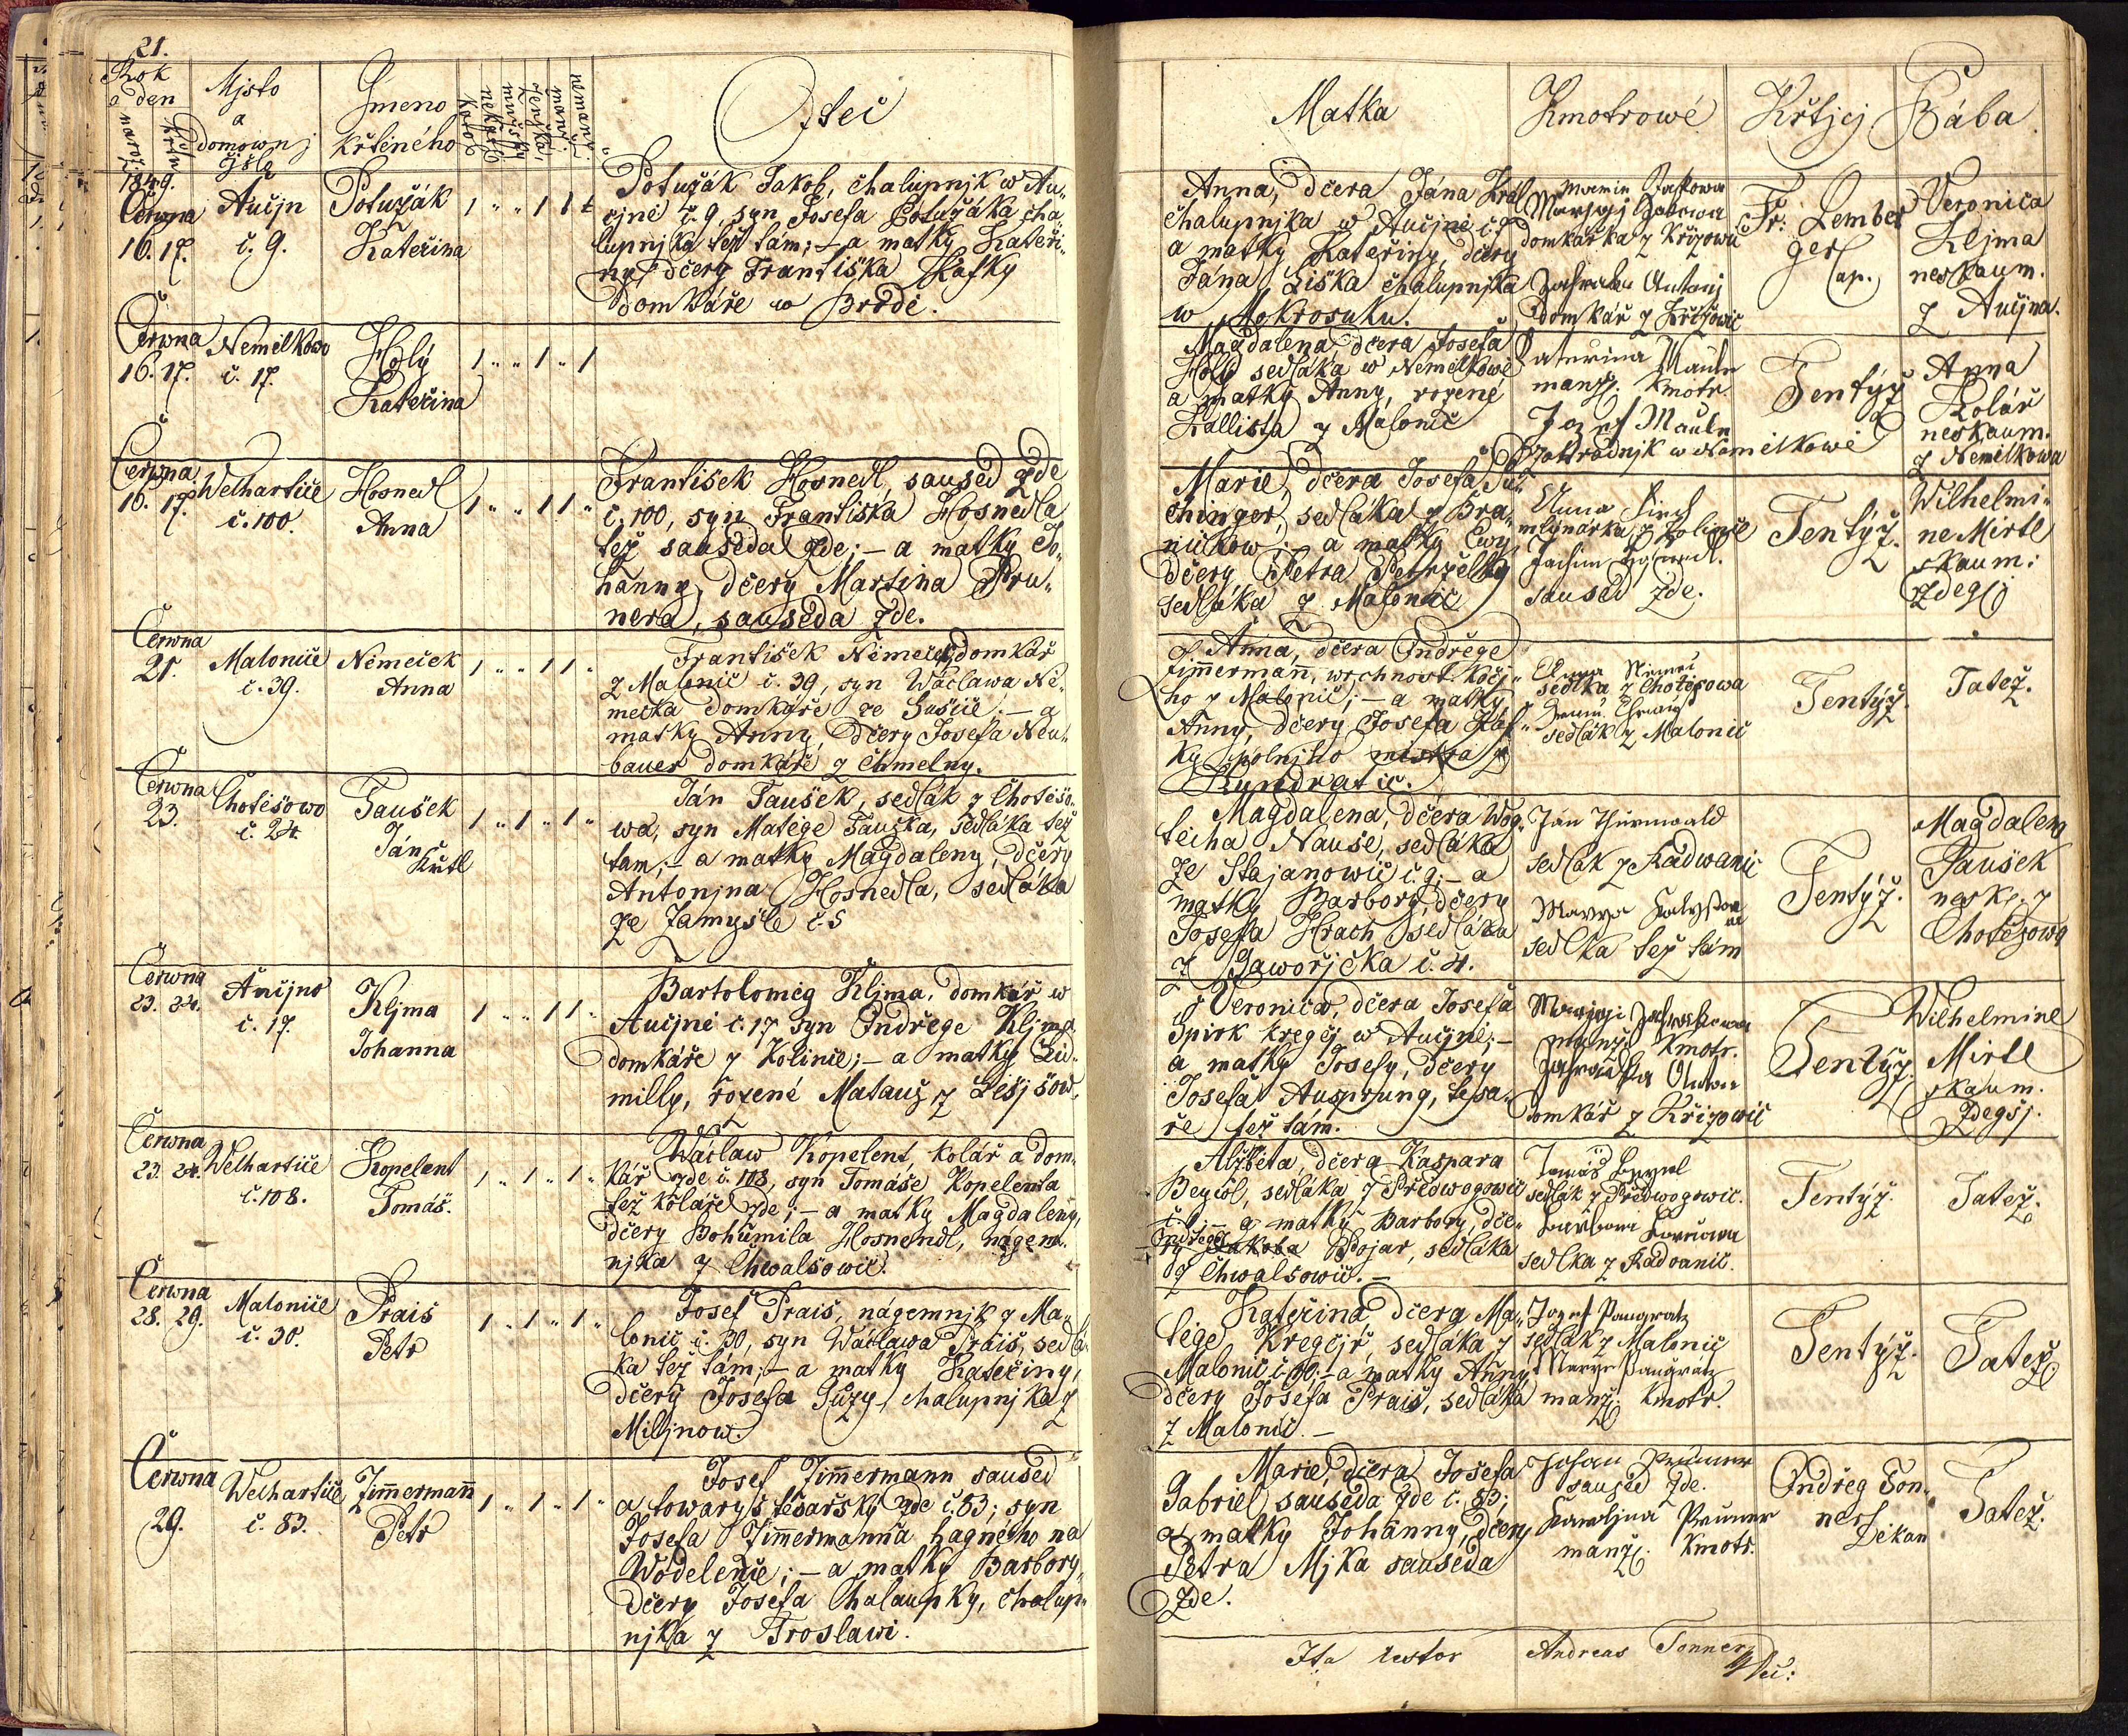 21.
Rok a den
naroz. křtu
Mjsto a domownj čjslo
Gmeno křtěného
Otec
Matka
Kmotrowé
Křtjcý
Bába
1849.
Čerwna
16. 17.
Aučjn
č. 9.
Potužák
Kateřina
1 " " 1 1
Potužák Jakob, chalupnjk w Au-
čjně č. 9, syn Josefa Potužáka cha
lupnjka též tám; – a matky Kateři-
ny, dčery Františka Kafky
domkáře w Brodě.
Anna, dčera Jána Král
chalupnjka w Aučjně č.
a matky Kateřiny, dčery
Jána Liška chalupnjka
w Mokrosuku.
domkářka z Křižowic
Antonj
domkář z Křižowic
Fr. Lember
ger
Cap.
Veronica
Kljma
neskaum.
z Aučjna.
Čerwna
16. 17.
Nemilkowo
č. 17.
Holý
Kateřina
1 " " 1 " 1
Magdalena dčera Josefa
Holý sedláka w Nemilkowě
a matky Anny, rozené
Kallista z Malonic
Kateřina Mauln
manž. kmotr.
Jozef Mauln
zahradnjk w Nemilkowě
Tentýž
Anna
Kolář
neskaum.
z Nemilkowa
Čerwna
16. 17.
Welhartice
č. 100.
Hosnedl
Anna
1 " " 1 1 "
František Hosnedl, saused zde
č. 100, syn Františka Hosnedla
též sauseda zde; – a matky Jo-
hanny, dčery Martina Pru-
nera, sauseda zde.
Marie, dčera Josefa
chinger, sedláka z Bra-
ničkow; – a matky Ewy,
dčery Petra Petrželky
sedláka z Malonic
Anna
mlynářka z Kolince
saused zde.
Tentýž.
Wilhelmi-
ne Mirtl
skaum:
zdegšj
Čerwna
21.
Malonice
č. 39.
Němeček
Anna
1 " " 1 1 "
František Němeček, domkář
z Malonic č. 39, syn Wáclawa Ně-
mečka domkáře ze Sušice. – a
matky Anny, dčery Josefa Neu-
bauer domkáře z Chmelny.
Anna, dčera Ondřege
Zimmermann, wrchnost. kočj-
ho z Malonic; – a matky
Anny, dčery Josefa Kaf-
ky polnjho mistra z
Kundratic.
sedlka z Chotěšowa
sedlák z Malonic
Tentýž.
Tatež.
Čerwna
23.
Chotěšowo
č. 24
Taušek
Ján
Křtl
1 " 1 " 1 "
Ján Taušek, sedlák z Chotěšo-
wa, syn Matěge Tauška, sedláka též
tam; – a matky Magdaleny, dčery
Antonjna Hosnedla, sedláka
ze Zamyšle č. 5
Magdalena, dčera Wog-
těcha Nauše, sedláka
ze Stajanowic č. 9; – a
matky Barbory, dčery
Josefa Hrach sedláka
z Jaworjčka č. 4.
Ján Thürnwald
sedlák z Radwanic
sedlka též tám
Tentýž.
Magdalena
Taušek
nesk. z
Chotěšowa
Čerwna
23. 24.
Aučjno
č. 17.
Kljma
Johanna
1 " " 1 1 "
Bartoloměg Kljma, domkář w
Aučjně č. 17 syn Ondřege Kljma,
domkáře z Kolince; – a matky Lid-
milly, rozené Matauš z Lešjšow.
Veronica, dčera Josefa
Spirk kregčj w Aučjně; –
a matky Josefy, dčery
Josefa Ausprung, tesa-
ře též tám.
manž. kmotr.
domkář z Křižowic
Tentýž.
Wilhelmine
Mirtl
skaum.
zdegšj.
Čerwna
23. 24.
Welhartice
č. 108.
Kopelent
Tomáš.
1 " 1 " 1 "
Wáclaw Kopelent, kolář a dom-
kář zde č. 108, syn Tomáše Kopelenta
též koláře zde; – a matky Magdaleny,
dčery Bohumila Hosnendl, nágem-
njka z Chwalšowic.
Alžběta, dčera Kaspara
Beycol, sedláka z Předwogowic
č. 1; – a matky Barbory, dče-
ry Ondřege Jakoba Bojar, sedláka
z Chwalšowic. –
Tomáš Beycol
sedlák z Předwogowic.
sedlka z Radwanic.
Tentýž.
Tatež.
Čerwna
28. 29.
Malonice
č. 30.
Prais
Petr
1 " 1 " 1 "
Josef Prais, nágemnjk z Ma-
lonic č. 30, syn Wáclawa Prais, sedlá-
ka též tám; – a matky Kateřiny,
dčery Josefa Suzy, chalupnjka z
Miljnow.
Kateřina, dčera Ma-
těge Kregčjř, sedláka z
Malonic č. 40; – a matky Anny,
dčery Josefa Prais, sedláka
z Malonic. –
Jozef Pangratz
sedlák z Malonic
Marye Pangratz
manž. kmotr.
Tentýž.
Tatež.
Čerwna
29.
Welhartice
č. 83.
Zimmermann
Petr
1 " 1 " 1 "
Josef Zimmermann saused
a towaryš tesařský zde č. 83; syn
Josefa Zimmermanna hagného na
Wodelence; – a matky Barbory,
dčery Josefa Chalaupky, chalup-
njka z Froslawi.
Marie, dčera Josefa
Gabriel sauseda zde č. 83;
a matky Johanny, dčery
Petra Mjka sauseda
zde.
Johan Pruner
saused zde.
Karoljna Pruner
manž. kmotr.
Ondřeg Ton-
ner
Děkan
Tatež.
Ita testor Andreas Tonner